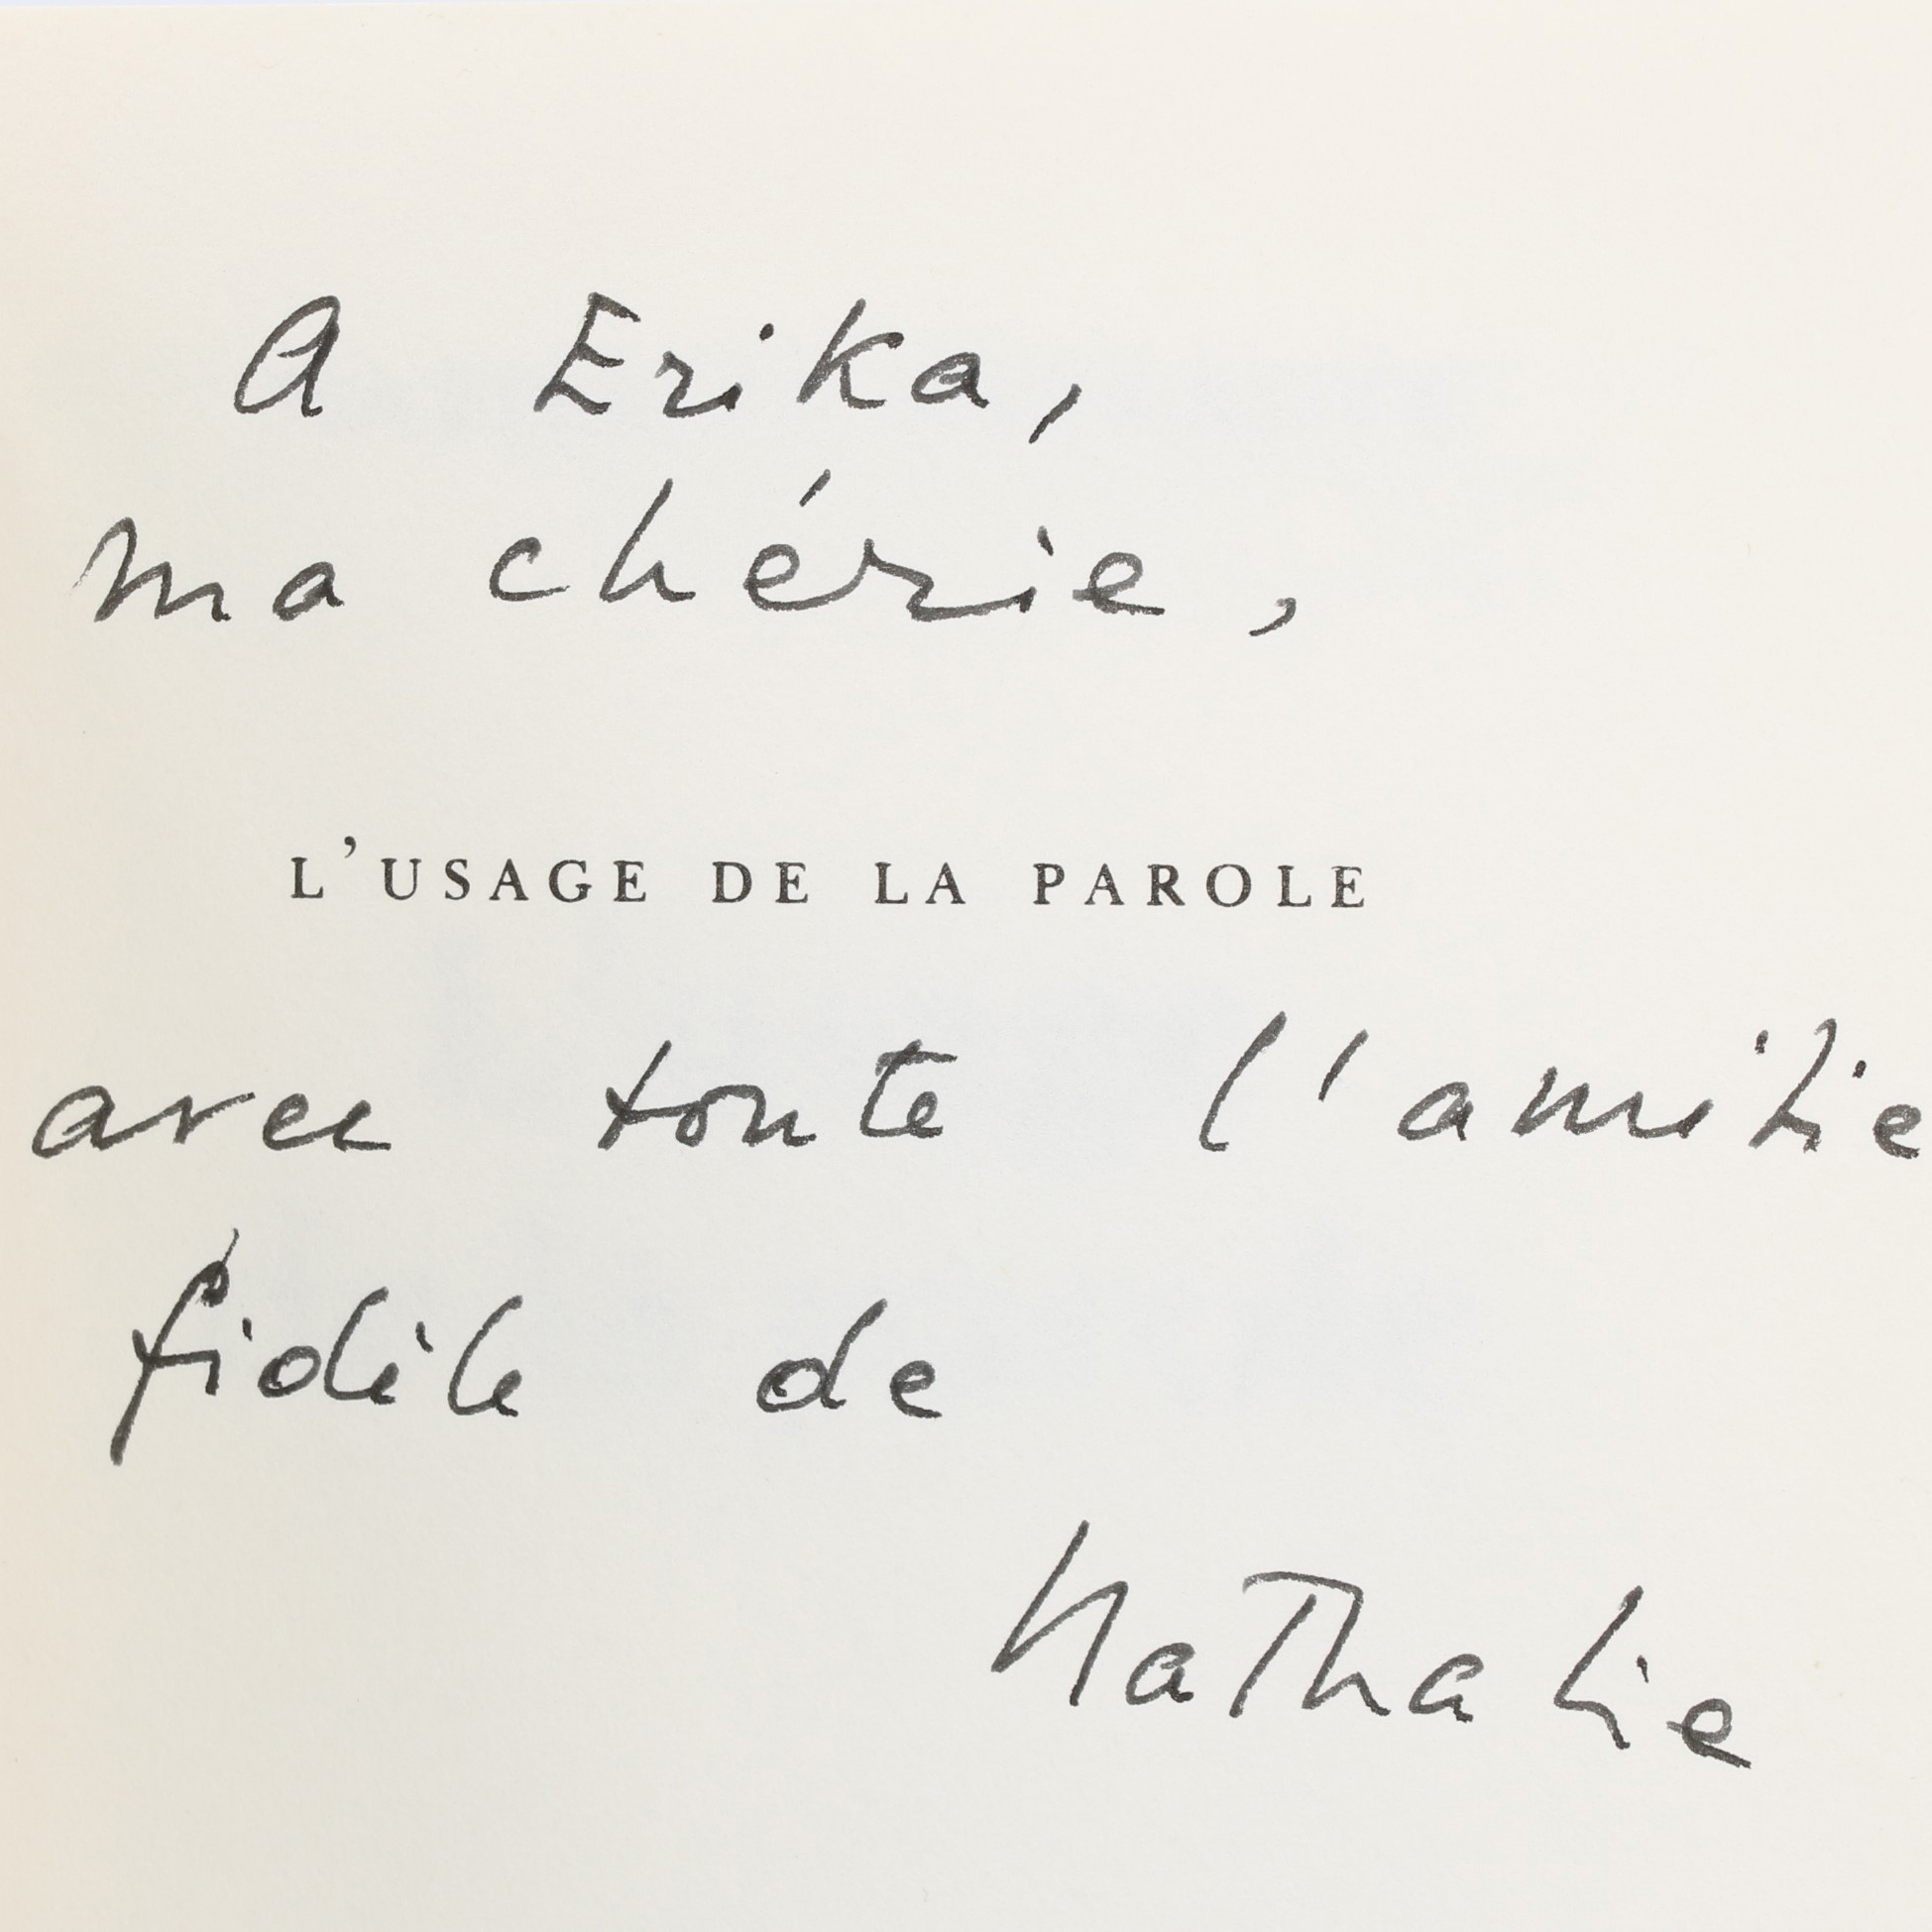 A Erika,
ma chérie,
L'USAGE DE LA PAROLE
avec toute l'amitie
fidèle de
Nathalie